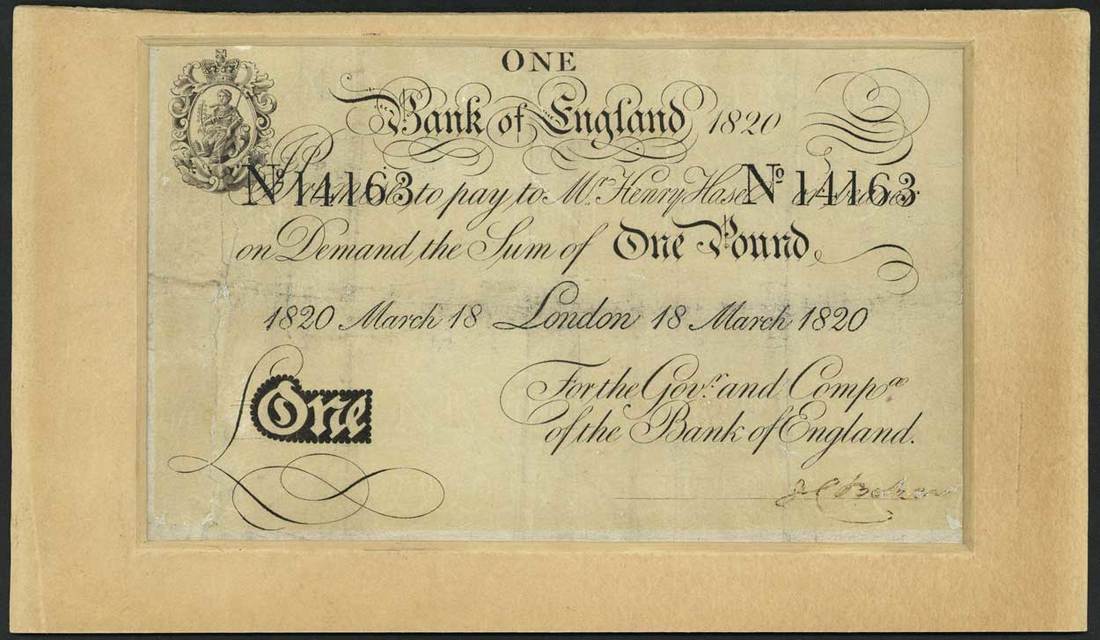 ONE
Bank of England 1820
Nº 14163 to pay to Mr. Henry Hase Nº 14163
on Demand the Sum of One Pound
1820 March 18 London 18 March 1820
For the Govr. and Compa
One
of the Bank of England.